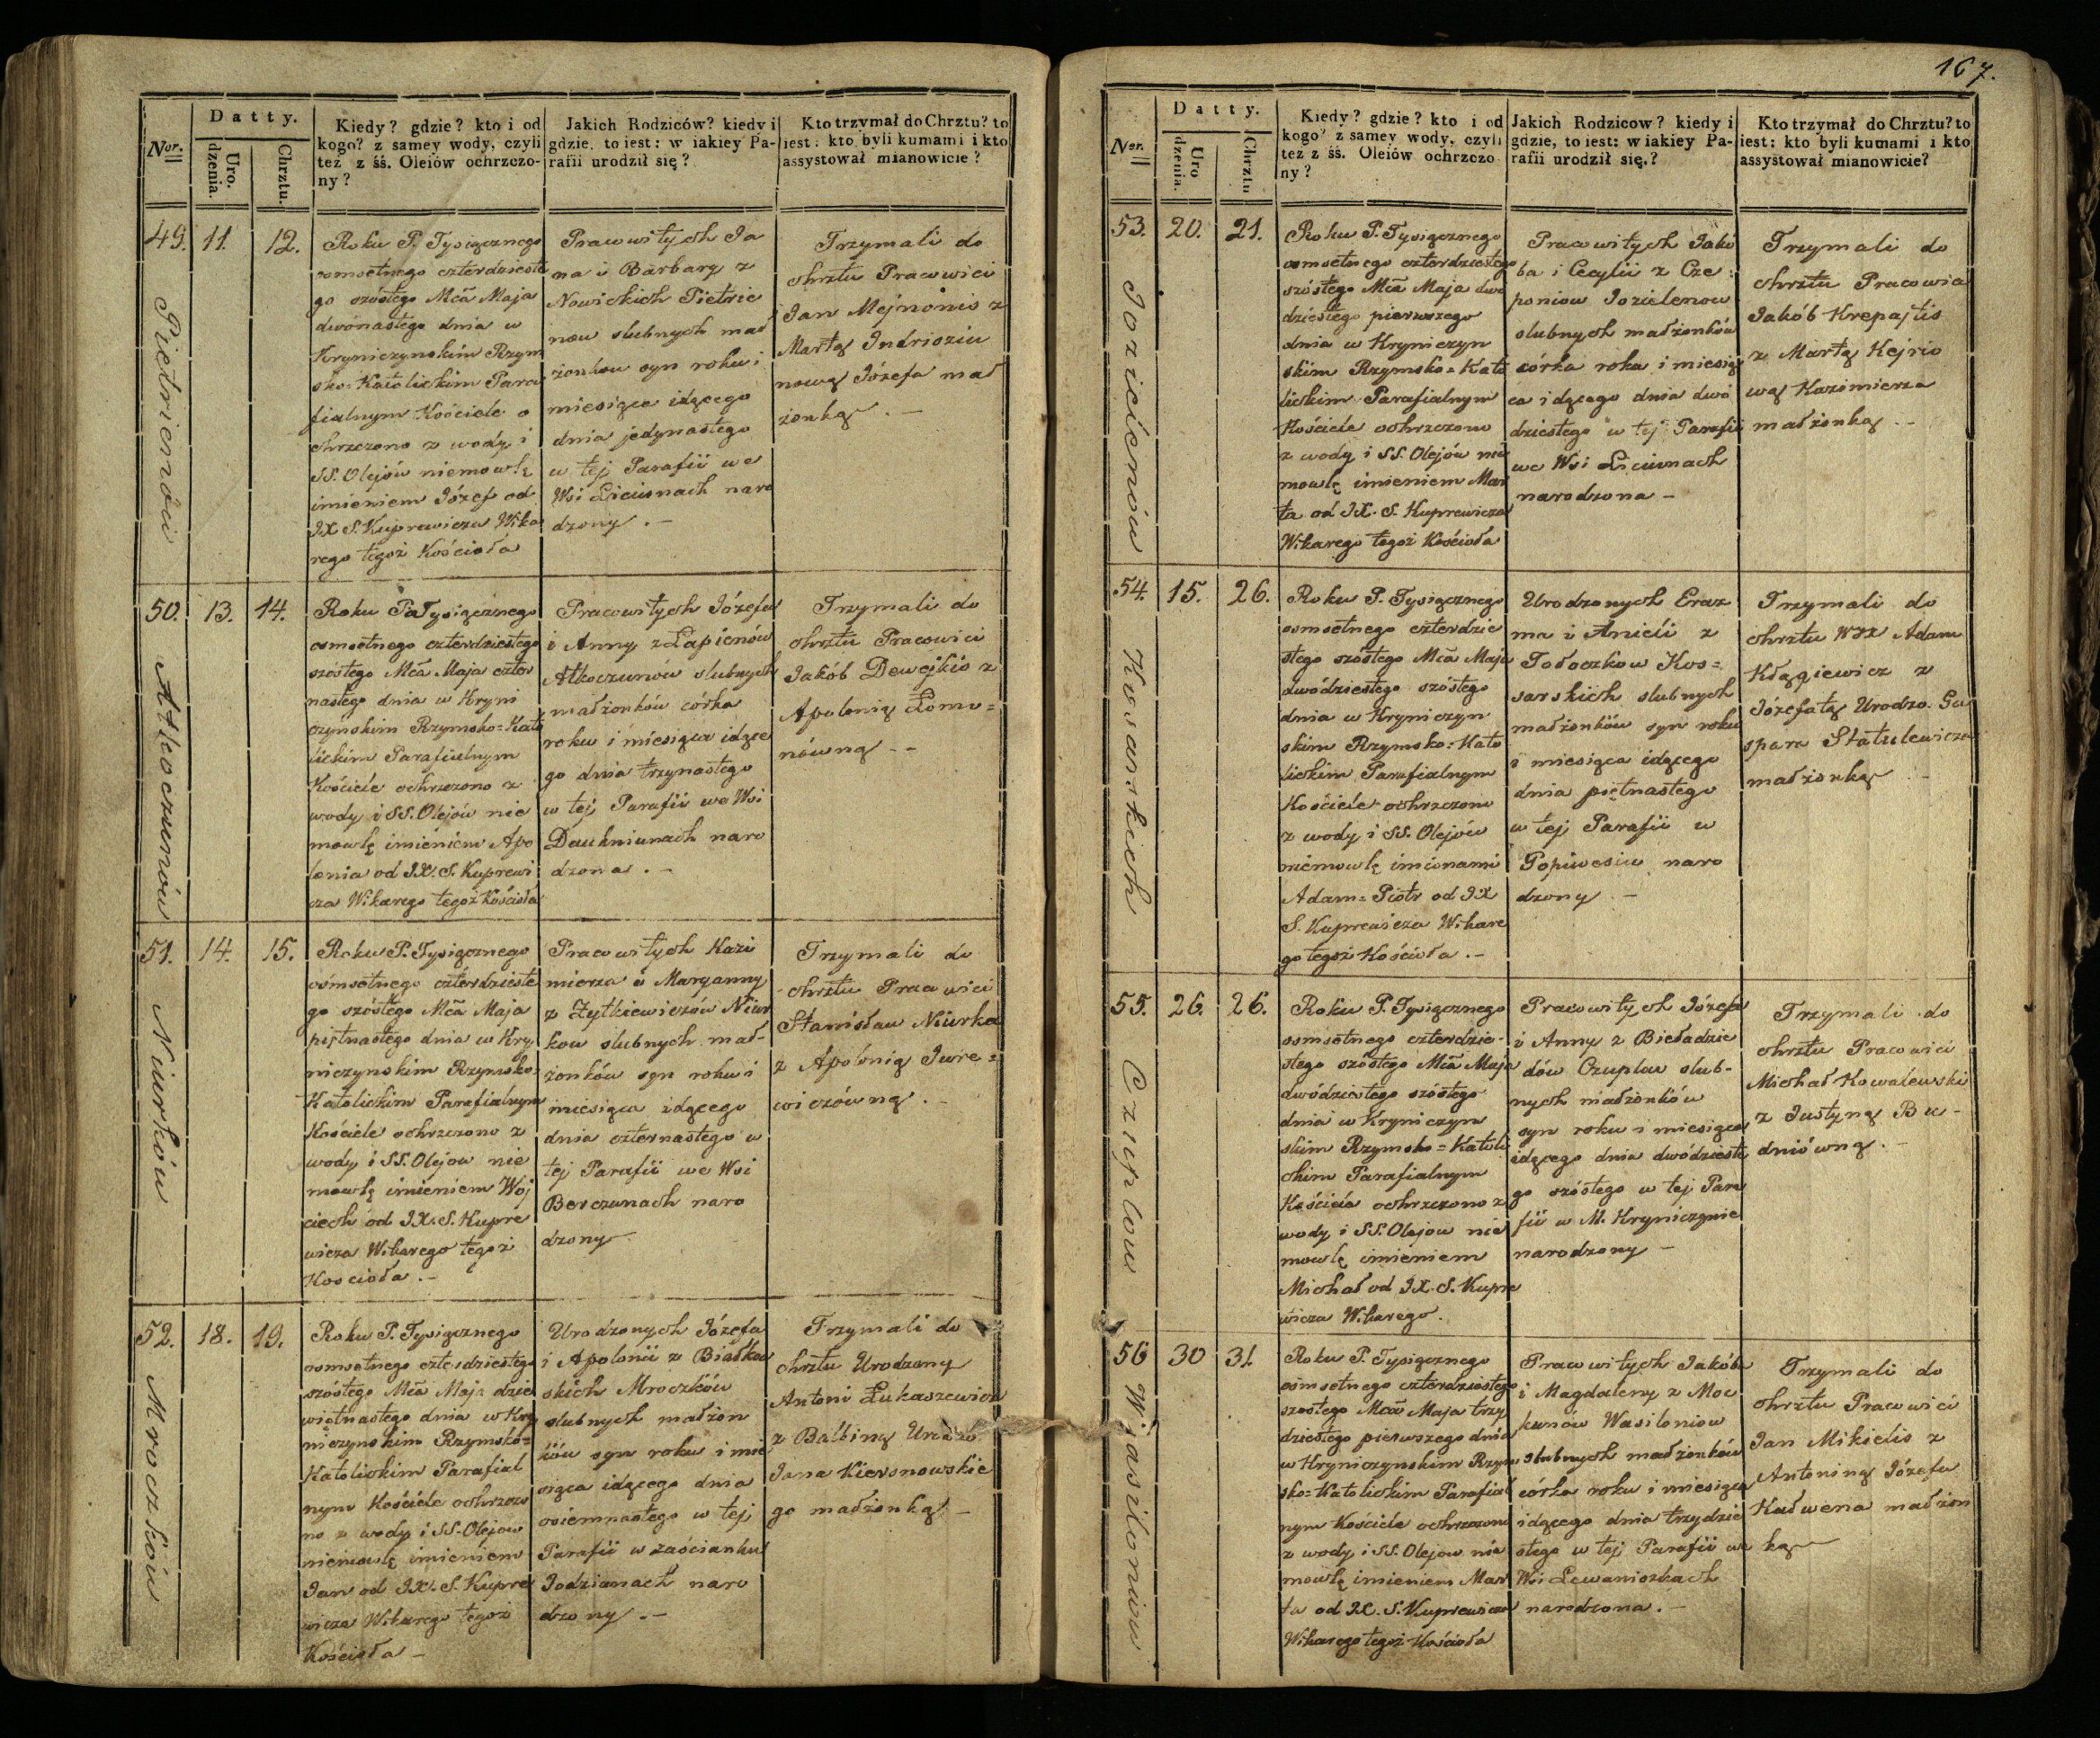 Nor.
Datty.
Uro.
dzenia.
Chrztu.
Kiedy? gdzie? kto i od
kogo? z samey wody, czyli
też z śś. Oleiów ochrzczo-
ny?
Jakich Rodziców? kiedy i
gdzie, to iest: w iakiey Pa-
rafii urodził się?
Kto trzymał do Chrztu? to
iest: kto byli kumami i kto
assystował mianowicie?
49.
11.
12.
Pietrienów
Roku P. Tysiącznego
osmsetnego czterdzieste
go szóstego Mca Maja
dwónastego dnia w
Kryniczynskim Rzym
sko-Katolickim Para
fialnym Kościele o
chrzczono z wody i
SS. Olejów niemowlę
imieniem Józef od
JX S. Kuprewicza Wika
rego tegoż Kościoła
Pracowitych Ja
na i Barbary z
Nowickich Pietrie
now slubnych mał
żonkow syn roku i
miesiąca idącego
dnia jedynastego
w tej Parafii we
Wsi Liciunach naro
dzony.-
Trzymali do
chrztu Pracowici
Jan Mejnonis z
Martą Indrioziu
nową Józefa mał
żonką.-
50.
13.
14.
Atkoczunów
Roku Pa Tysiącznego
osmsetnego czterdziestego
szóstego Mca Maja czter
nastego dnia w Kryni
czynskim Rzymsko-Kato
lickim Parafialnym
Kościele ochrzczono z
wody i SS. Olejów nie
mowlę imieniem Apo
lonia od JX. S. Kuprewi
cza Wikarego tegoż Kościoła
Pracowitych Józefa
i Anny z Łapienów
Atkoczunów slubnych
małżonków córka
roku i miesiąca idące
go dnia trzynastego
w tej Parafii we Wsi
Daukniunach naro
dzona.-
Trzymali do
chrztu Pracowici
Jakób Dewejkis z
Apolonią Łomo-
nówną --
51.
14.
15.
Niurków
Roku P. Tysiącznego
ośmsetnego czterdzieste
go szóstego Mca Maja
piętnastego dnia w Kry
niczynskim Rzymsko-
Katolickim Parafialnym
Kościele ochrzczono z
wody i SS. Olejow nie
mowlę imieniem Woj
ciech od JX. S. Kupre
wicza Wikarego tegoż
Kościoła.-
Pracowitych Kazi
mierza i Maryanny
z Żytkiewiczów Niur
kow slubnych mał-
żonków syn roku i
miesiąca idącego
dnia czternastego w
tej Parafii we Wsi
Berczunach naro
dzony
Trzymali do
chrztu Pracowici
Stanisław Niurka
z Apolonią Jure-
wiczówną.-
52.
18.
19.
Mroczków
Roku P. Tysiącznego
osmsetnego czterdziestego
szóstego Mca Maja dzie
więtnastego dnia w Kry
niczynskim Rzymsko-
Katolickim Parafial
nym Kościele ochrzczo
no z wody i SS. Olejow
niemowlę imieniem
Jan od JX. S. Kupre
wicza Wikarego tegoż
Kościoła -
Urodzonych Józefa
i Apolonii z Białkow
skich Mroczków
slubnych małżon
ków syn roku i mie
siąca idącego dnia
osiemnastego w tej
Parafii w zaścianku
Jodzianach naro
dzony.-
Trzymali do
chrztu Urodzony
Antoni Łukaszewicz
z Balbiną Urodzo
Jana Kiersnowskie
go małżonką -
167.
Nor.
Datty.
Uro
dzenia.
Chrztu
Kiedy? gdzie? kto i od
kogo? z samey wody, czyli
też z śś. Oleiów ochrzczo
ny?
Jakich Rodzicow? kiedy i
gdzie, to iest: w iakiey Pa-
rafii urodził się?
Kto trzymał do Chrztu? to
iest: kto byli kumami i kto
assystował mianowicie?
53.
20.
21.
Jozielenów
Roku P. Tysiącznego
osmsetnego czterdziestego
szóstego Mca Maja dwó
dziestego pierwszego
dnia w Kryniczyn
skim Rzymsko-Kato
lickim Parafialnym
Kościele ochrzczono
z wody i SS. Olejów nie
mowlę imieniem Mar
ta od JX. S. Kuprewicza
Wikarego tegoż Kościoła
Pracowitych Jakó
ba i Cecylii z Cze-
poniow Jozielenow
slubnych małżonków
córka roku i miesią
ca idącego dnia dwó
dziestego w tej Parafii
we Wsi Liciunach
narodzona -
Trzymali do
chrztu Pracowici
Jakób Krepajtis
z Martą Kejrio
wą Kazimierza
małżonką.-
54.
15.
26.
Kosarskich
Roku P. Tysiącznego
osmsetnego czterdzie
stego szóstego Mca Maja
dwódziestego szóstego
dnia w Kryniczyn
skim Rzymsko-Kato
lickim Parafialnym
Kościele ochrzczono
z wody i SS. Olejów
niemowlę imionami
Adam-Piotr od JX
S. Kuprewicza Wikare
go tegoż Kościoła.-
Urodzonych Eraz
ma i Anieli z
Tołoczkow Kos-
sarskich slubnych
małżonków syn roku
i miesiąca idącego
dnia piętnastego
w tej Parafii w
Popiwesiu naro
dzony -
Trzymali do
chrztu WJX Adam
Kłągiewicz z
Józefatą Urodzo. Ga
spara Statulewicza
małżonką -
55.
26.
26.
Czuplow
Roku P. Tysiącznego
osmsetnego czterdzie-
stego szóstego Mca Maja
dwódziestego szóstego
dnia w Kryniczyn
skim Rzymsko-Katoli
ckim Parafialnym
Kościele ochrzczono z
wody i SS. Olejow nie
mowlę imieniem
Michał od JX. S. Kupre
wicza Wikarego.
Pracowitych Józefa
i Anny z Bieładzie
dów Czuplow slub-
nych małżonków
syn roku i miesiąca
idącego dnia dwódzieste
go szóstego w tej Para
fii w M. Kryniczynie
narodzony -
Trzymali do
chrztu Pracowici
Michał Kowalewski
z Justyną Bu-
dniówną.-
56
30
31.
Wasiloniow
Roku P. Tysiącznego
ośmsetnego czterdziestego
szóstego Mca Maja trzy
dziestego pierwszego dnia
w Krynczynskim Rzym
sko-Katolickim Parafial
nym Kościele ochrzczono
z wody i SS. Olejow nie
mowlę imieniem Mar
ta od JX. S. Kuprewicza
Wikarego tegoż Kościoła
Pracowitych Jakóba
i Magdaleny z Moc
kunów Wasiloniow
slubnych małżonków
córka roku i miesiąca
idącego dnia trzydzie
stego w tej Parafii we
Wsi Lewaniszkach
narodzona.-
Trzymali do
chrztu Pracowici
Jan Mikielis z
Antoniną Józefa
Kadwena małżon
ką